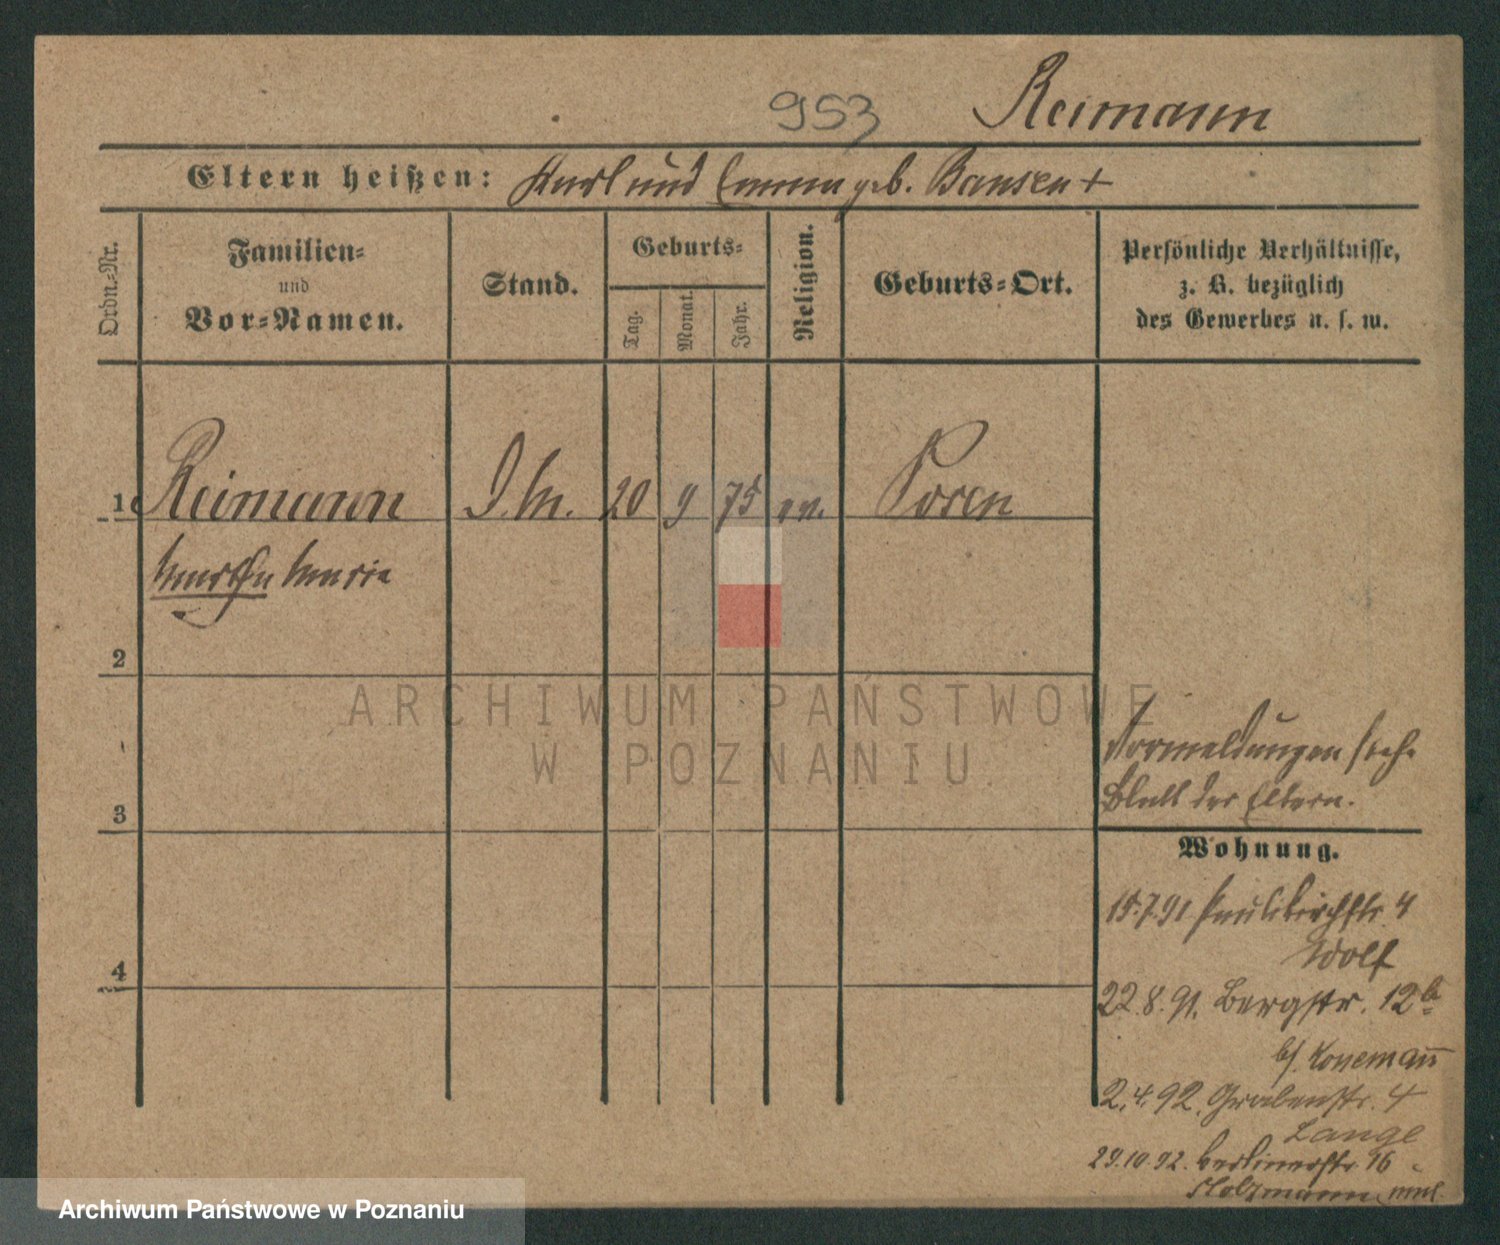 953 Reimann
Eltern heißen: Karl und Emma geb. Bansen +
Ordn.-Nr.
Familien-
und
Vor-Namen.
Stand.
Geburts-
Tag.
Monat.
Jahr.
Religion.
Geburts-Ort.
Persönliche Verhältnisse,
z. B. bezüglich
des Gewerbes u. s. w.
1 Reimann 20 9 75 ev. Posen
Martha Marie
2
ARCHIWUM PAŃSTWOWE
W POZNANIU
Vormeldungen siehe
Blatt der Eltern.
3
Wohnung.
15.7.91 Paulikirchstr. 4
Wolf
4
22.8.91. Bergstr. 12b
b/ Konemann
2.4.92. Grabenstr. 4
Lange
29.10.92. Berlinerstr. 16
Holzmann
Archiwum Państwowe w Poznaniu